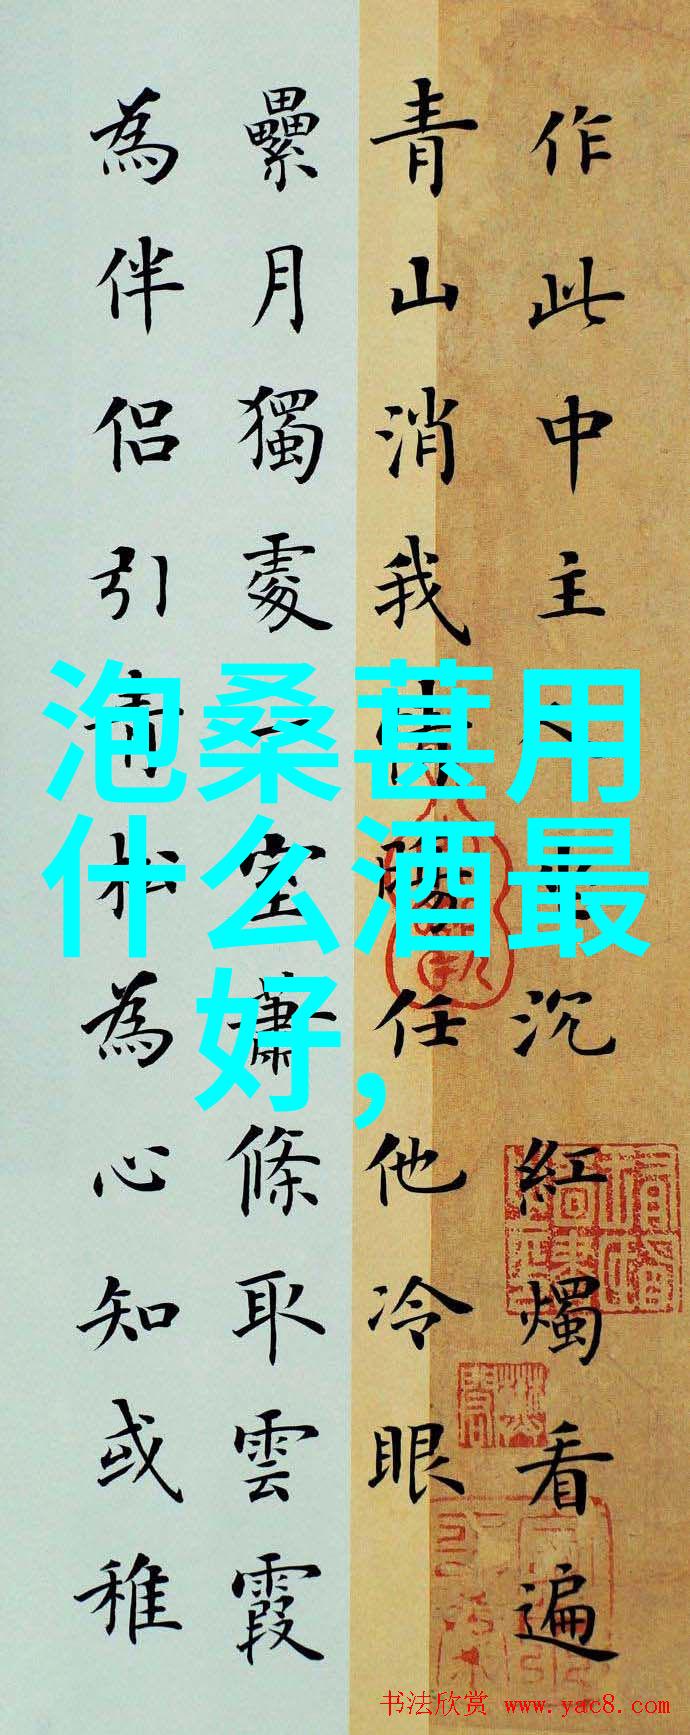 作此中主人坐沉紅燭看遍
青山消我任他冷眼
纍月獨處一室蕭條取雲霞
為伴侶引青松為心知或稚
泡桑葚用
什么酒最
好,
书法欣赏 www.yac8.com